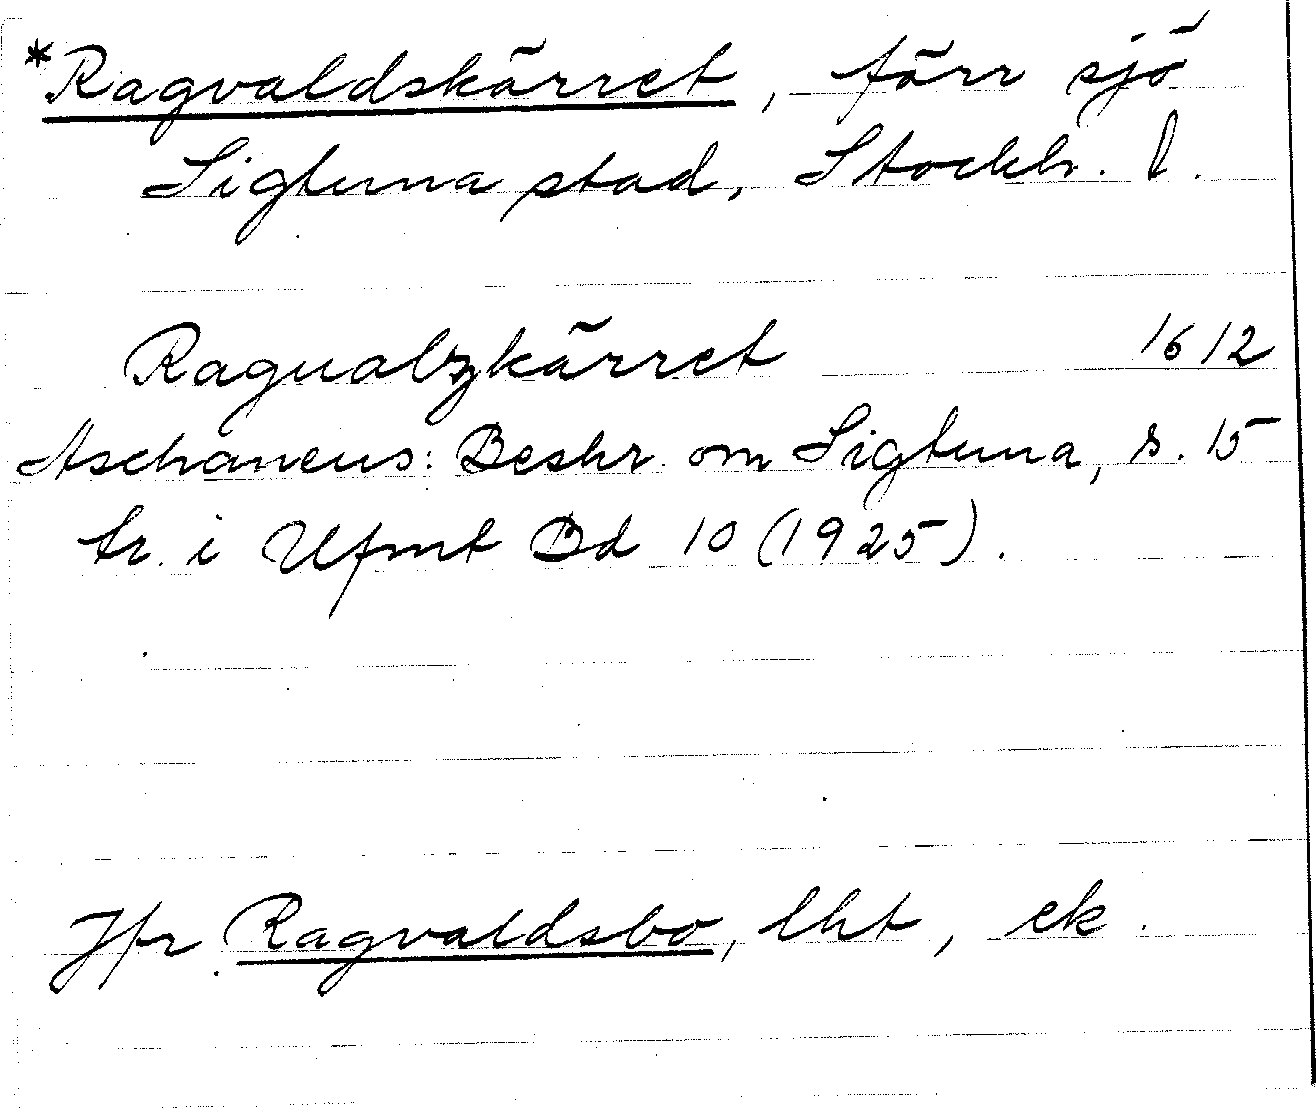 *Ragvaldskärret, förr sjö
Sigtuna stad, Stockh. l.
Ragualzkärret 1612
Aschaneus: Beskr. om Sigtuna, s. 15
tr. i Ufmt Bd 10 (1925).
Jfr Ragvaldsbo, lht, ek.